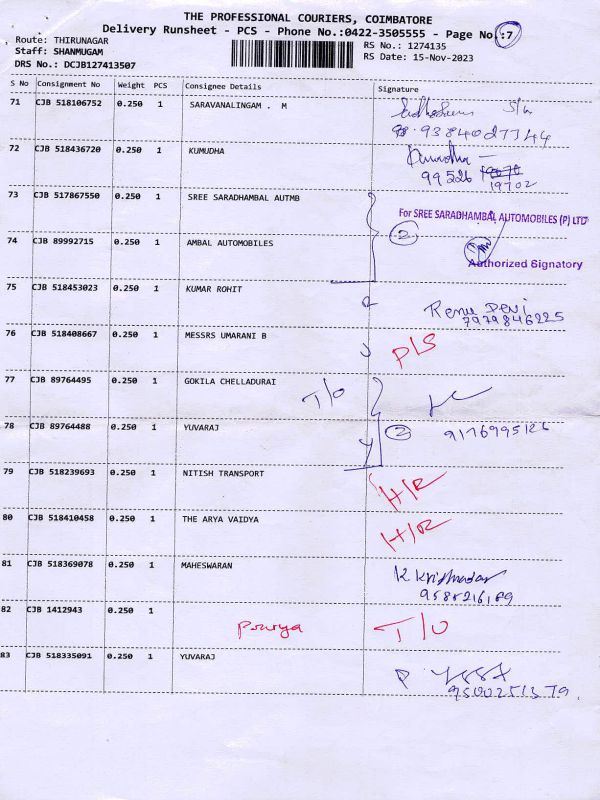 THE PROFESSIONAL COURIERS, COIMBATORE
Delivery Runsheet - PCS - Phone No.:0422-3505555 - Page No.:7
Route: THIRUNAGAR
Staff: SHANMUGAM
DRS No.: DCJB127413507
RS No.: 1274135
RS Date: 15-Nov-2023
S No Consignment No Weight PCS Consignee Details Signature
71 CJB 518106752 0.250 1 SARAVANALINGAM . M
9384027744
72 CJB 518436720 0.250 1 KUMUDHA
99526
19702
73 CJB 517867550 0.250 1 SREE SARADHAMBAL AUTMB
For SREE SARADHAMBAL AUTOMOBILES (P) LTD
2
74 CJB 89992715 0.250 1 AMBAL AUTOMOBILES
Authorized Signatory
75 CJB 518453023 0.250 1 KUMAR ROHIT
Renu Devi
7979846225
76 CJB 518408667 0.250 1 MESSRS UMARANI B
P/S
77 CJB 89764495 0.250 1 GOKILA CHELLADURAI
T/O
78 CJB 89764488 0.250 1 YUVARAJ
2
79 CJB 518239693 0.250 1 NITISH TRANSPORT
H/R
80 CJB 518410458 0.250 1 THE ARYA VAIDYA
H/R
81 CJB 518369078 0.250 1 MAHESWARAN
82 CJB 1412943 0.250 1
T/O
83 CJB 518335091 0.250 1 YUVARAJ